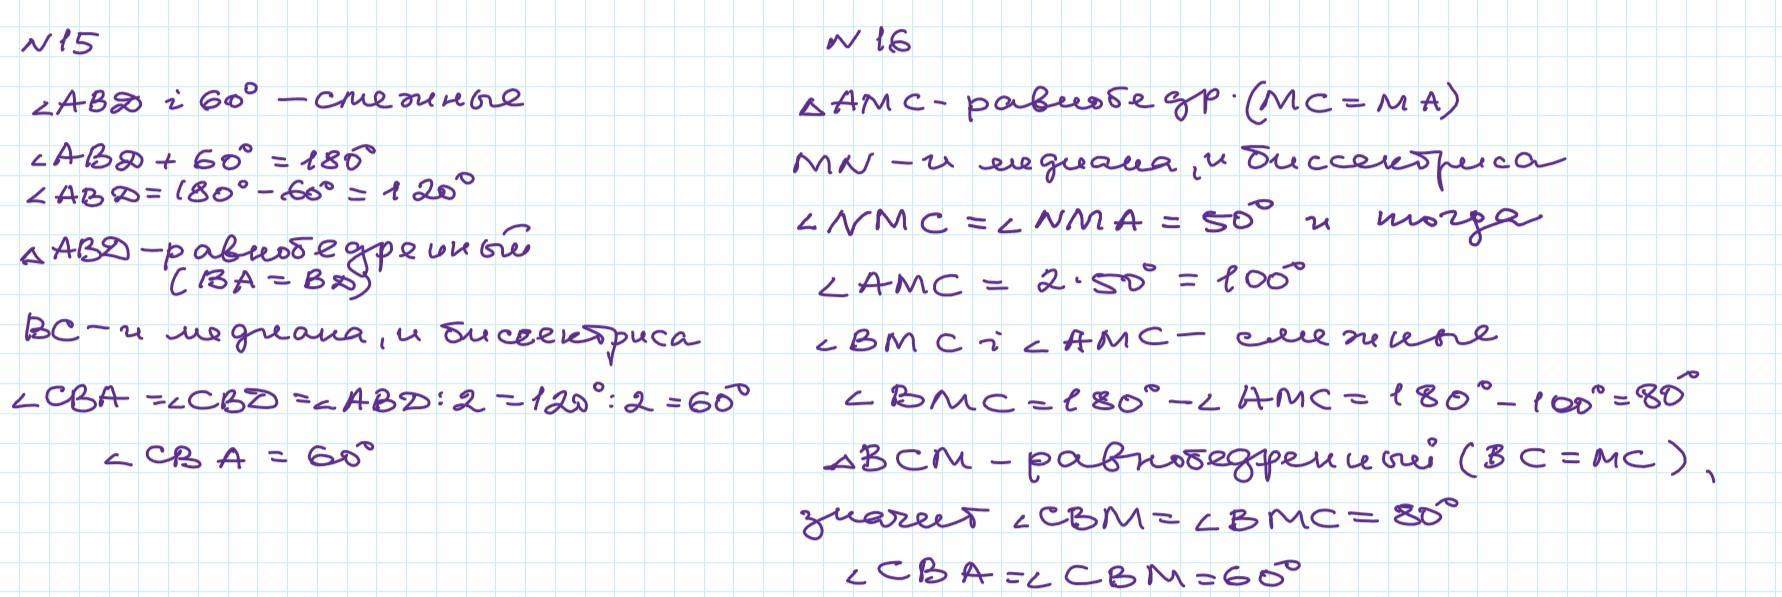 N 15
∠ABD i 60° – смежные
∠ABD + 60° = 180°
∠ABD = 180° – 60° = 120°
△ABD – равнобедренный
(BA = BD)
BC – и медиана, и биссектриса
∠CBA = ∠CBD = ∠ABD : 2 = 120° : 2 = 60°
∠CBA = 60°
N 16
△AMC – равнобедр. (MC = MA)
MN – и медиана, и биссектриса
∠NMC = ∠NMA = 50° и тогда
∠AMC = 2 · 50° = 100°
∠BMC i ∠AMC – смежные
∠BMC = 180° – ∠AMC = 180° – 100° = 80°
△BCM – равнобедренный (BC = MC),
значит ∠CBM = ∠BMC = 80°
∠CBA = ∠CBM = 60°